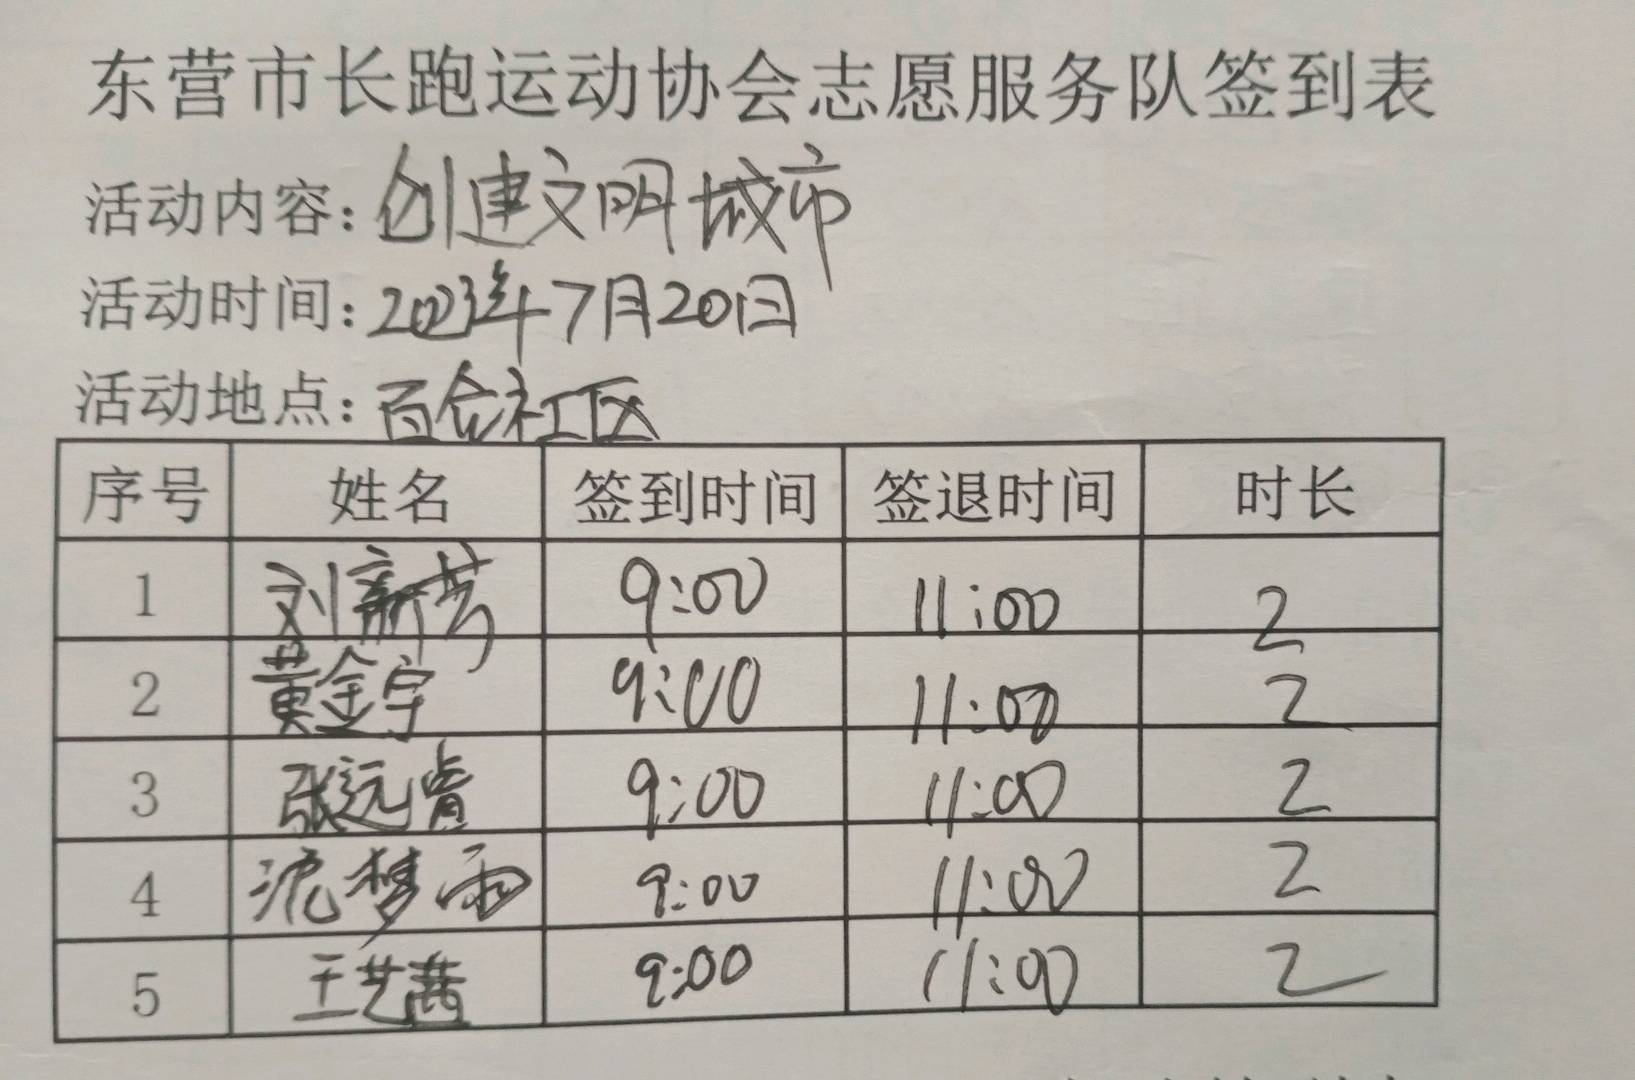 东营市长跑运动协会志愿服务队签到表
活动内容：创建文明城市
活动时间：2023年7月20日
活动地点：百合社区
序号 姓名 签到时间 签退时间 时长
1 刘新芳 9:00 11:00 2
2 黄金宇 9:00 11:00 2
3 张远 9:00 11:00 2
4 沈梦雨 9:00 11:00 2
5 王艺茜 9:00 11:00 2